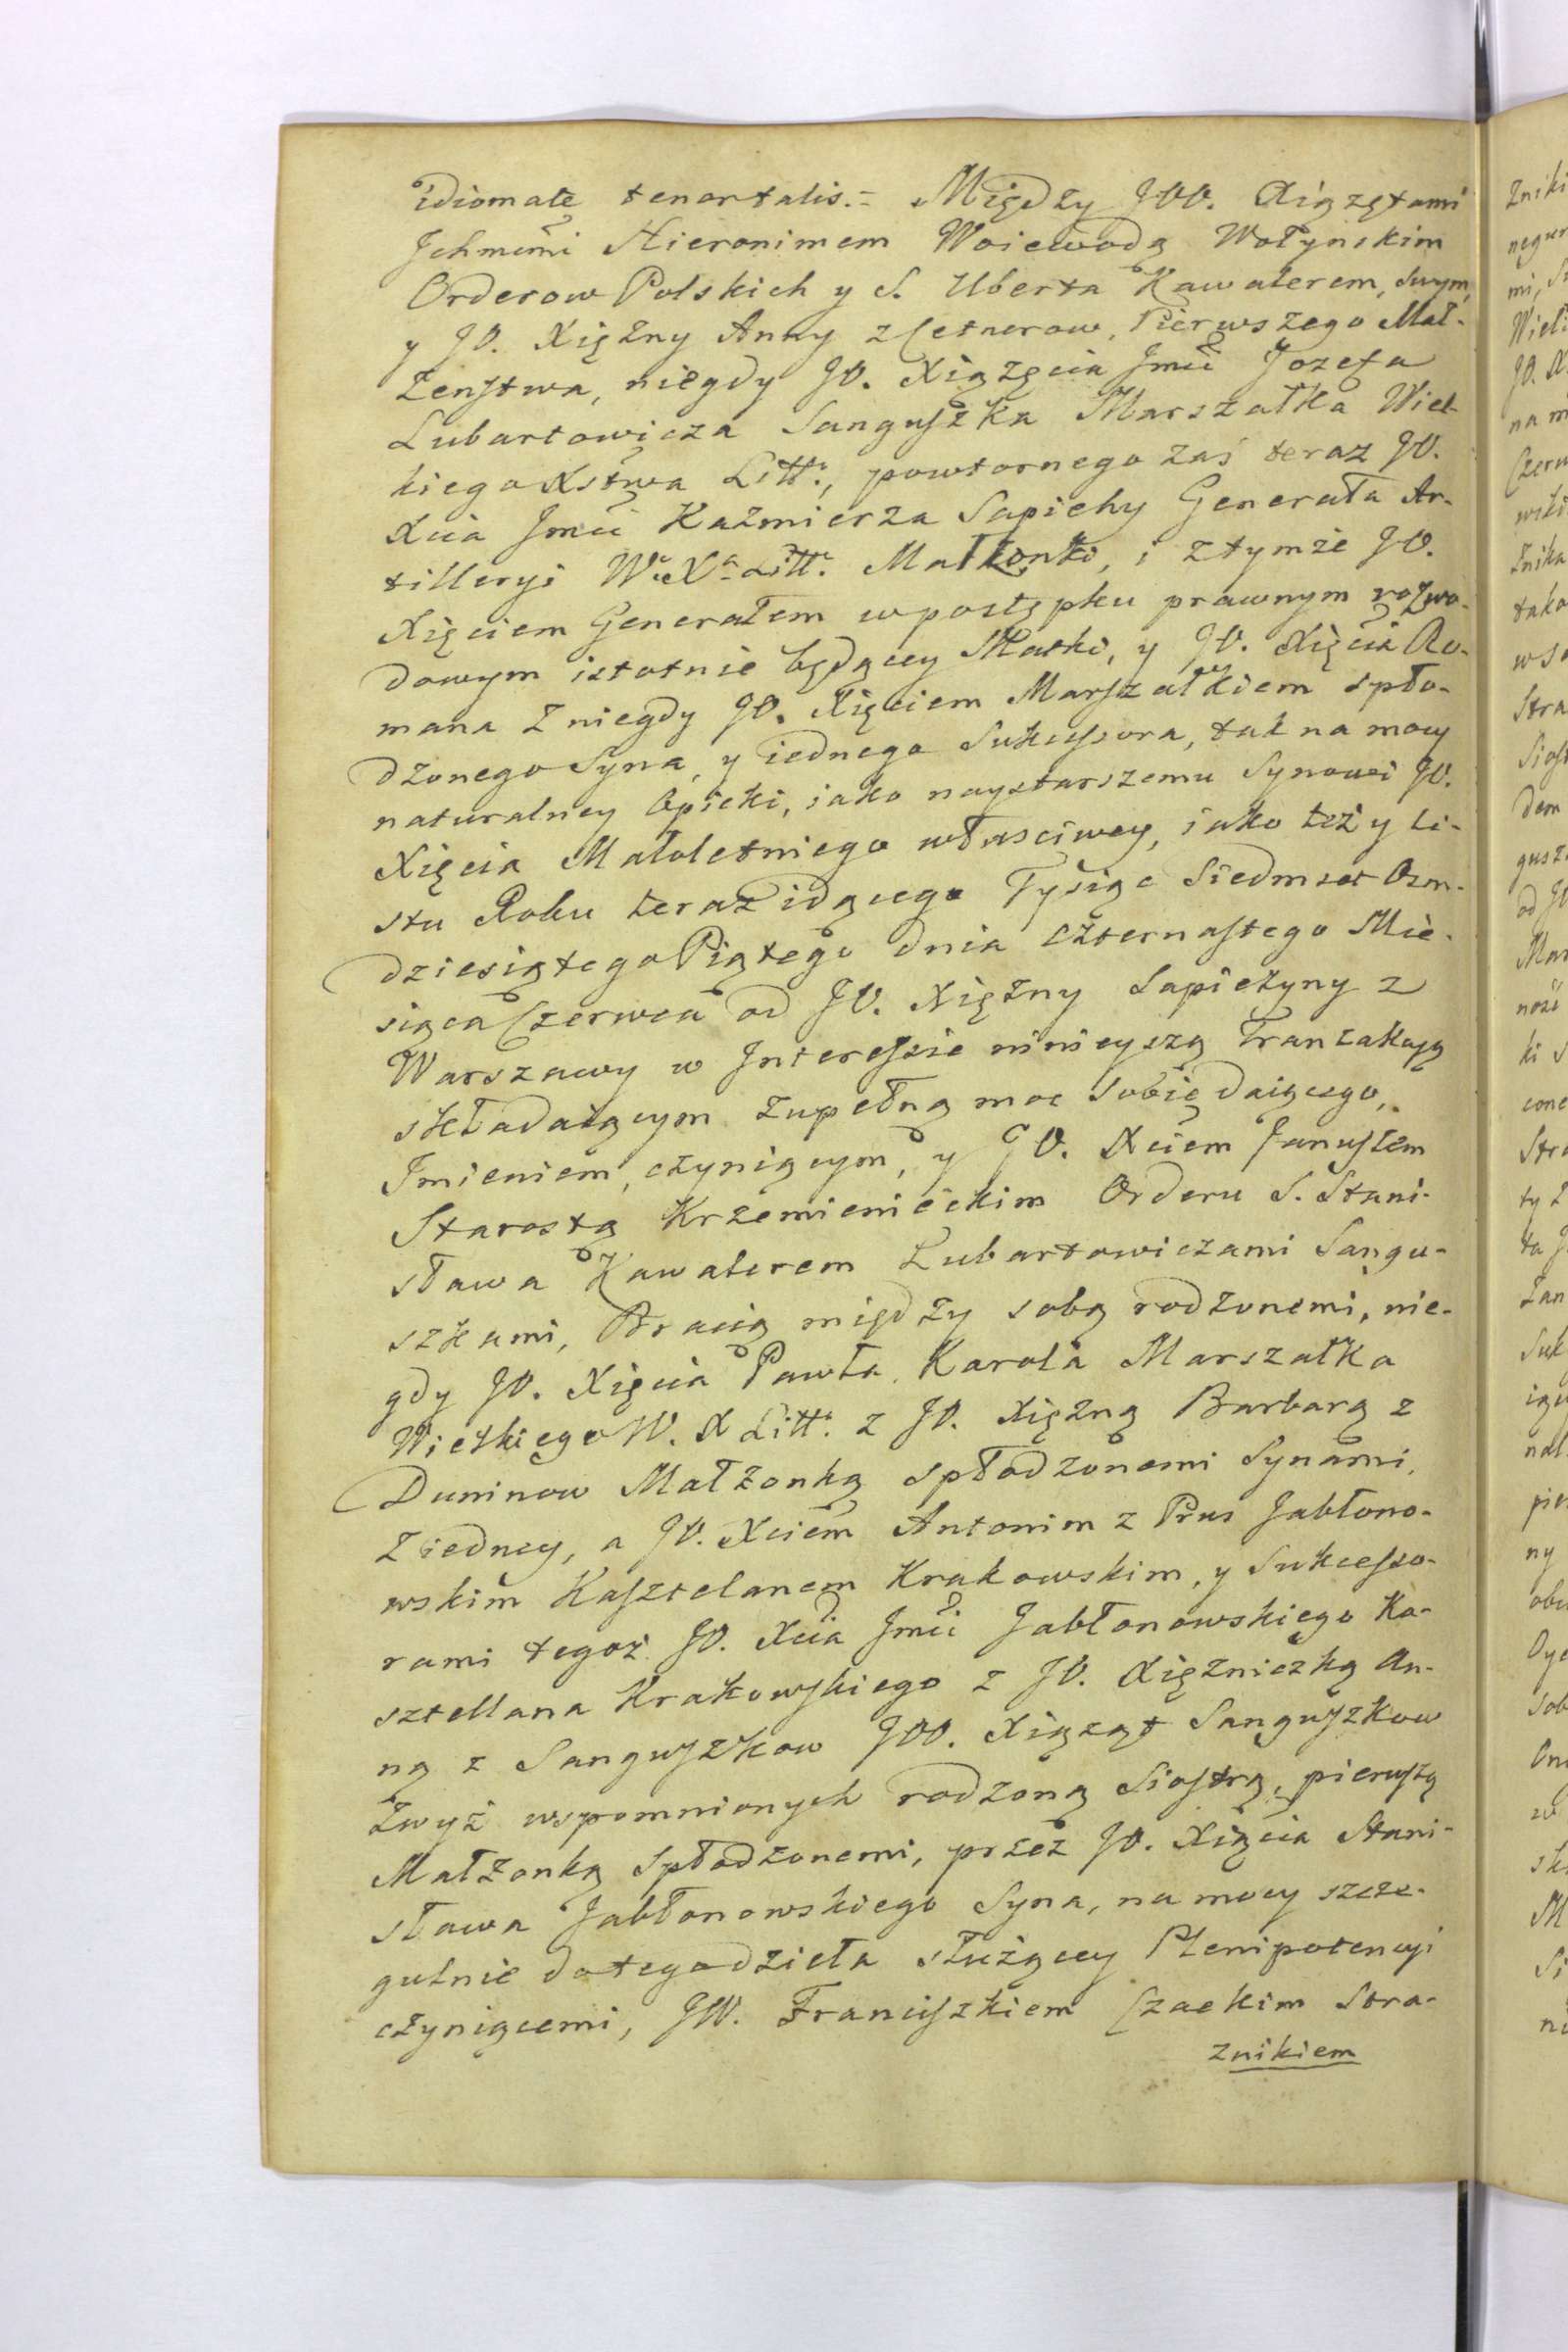 idiomate tenortalis.= Między JOO. Xiążętami
Jchmćmi Hieronimem Woiewodą Wołynskim
Orderow Polskich y S. Uberta Kawalerem, swym,
y JO. Xiężny Anny z Cetnerow, Pierwszego Mał-
żenstwa, niegdy JO. Xiążęcia Jmći Jozefa
Lubartowicza Sanguszka Marszałka Wiel-
kiego Xstwa Litt:, powtornego zaś teraz JO.
Xcia Jmći Kaźmierza Sapiehy Generała Ar-
tilleryi W. Xa Litt: Małżonki, i ztymże JO.
Xięciem Generałem w postępku prawnym rozwo-
dowym istotnie będącey Matki, y JO. Xięcia Ro-
mana z niegdy JO. Xięciem Marszałkiem spło-
dzonego Syna, y iednego Sukcessora, tak na mocy
naturalney Opieki, iako naystarszemu Synowi JO.
Xięcia Małoletniego własciwey, iako też y Li-
stu Roku teraz idącego Tysiąc Siedmset Osm-
dziesiątego Piątego dnia czternastego Mie-
siąca Czerwca od JO. Xiężny Sapieżyny z
Warszawy w Interessie ninieyszą Tranzakcyą
składaiącym zupełną moc sobie daiącego,
Jmieniem, czyniącym, y JO. Xciem Januszem
Starostą Krzemienieckim Orderu S. Stani-
sława Kawalerem Lubartowiczami Sangu-
szkami, Bracią między sobą rodzonemi, nie-
gdy JO. Xięcia Pawła Karola Marszałka
Wielkiego W. X Litt: z JO. Xiężną Barbarą z
Duninow Małżonką spłodzonemi Synami,
z iedney, a JO. Xciem Antonim z Prus Jabłono-
wskim Kasztelanem Krakowskim, y Sukcesso-
rami tegoż JO. Xcia Jmći Jabłonowskiego Ka-
sztellana Krakowskiego z JO. Xiężniczką An-
ną z Sanguszkow JOO. Xiążąt Sanguszkow
zwyż wspomnionych rodzoną Siostrą, pierwszą
Małżonką spłodzonemi, przez JO. Xięcia Stani-
sława Jabłonowskiego Syna, na mocy szcze-
gulnie dotegodzieła służącey Plenipotencyi
czyniącemi, JW. Franciszkiem Czackim Stra-
znikiem